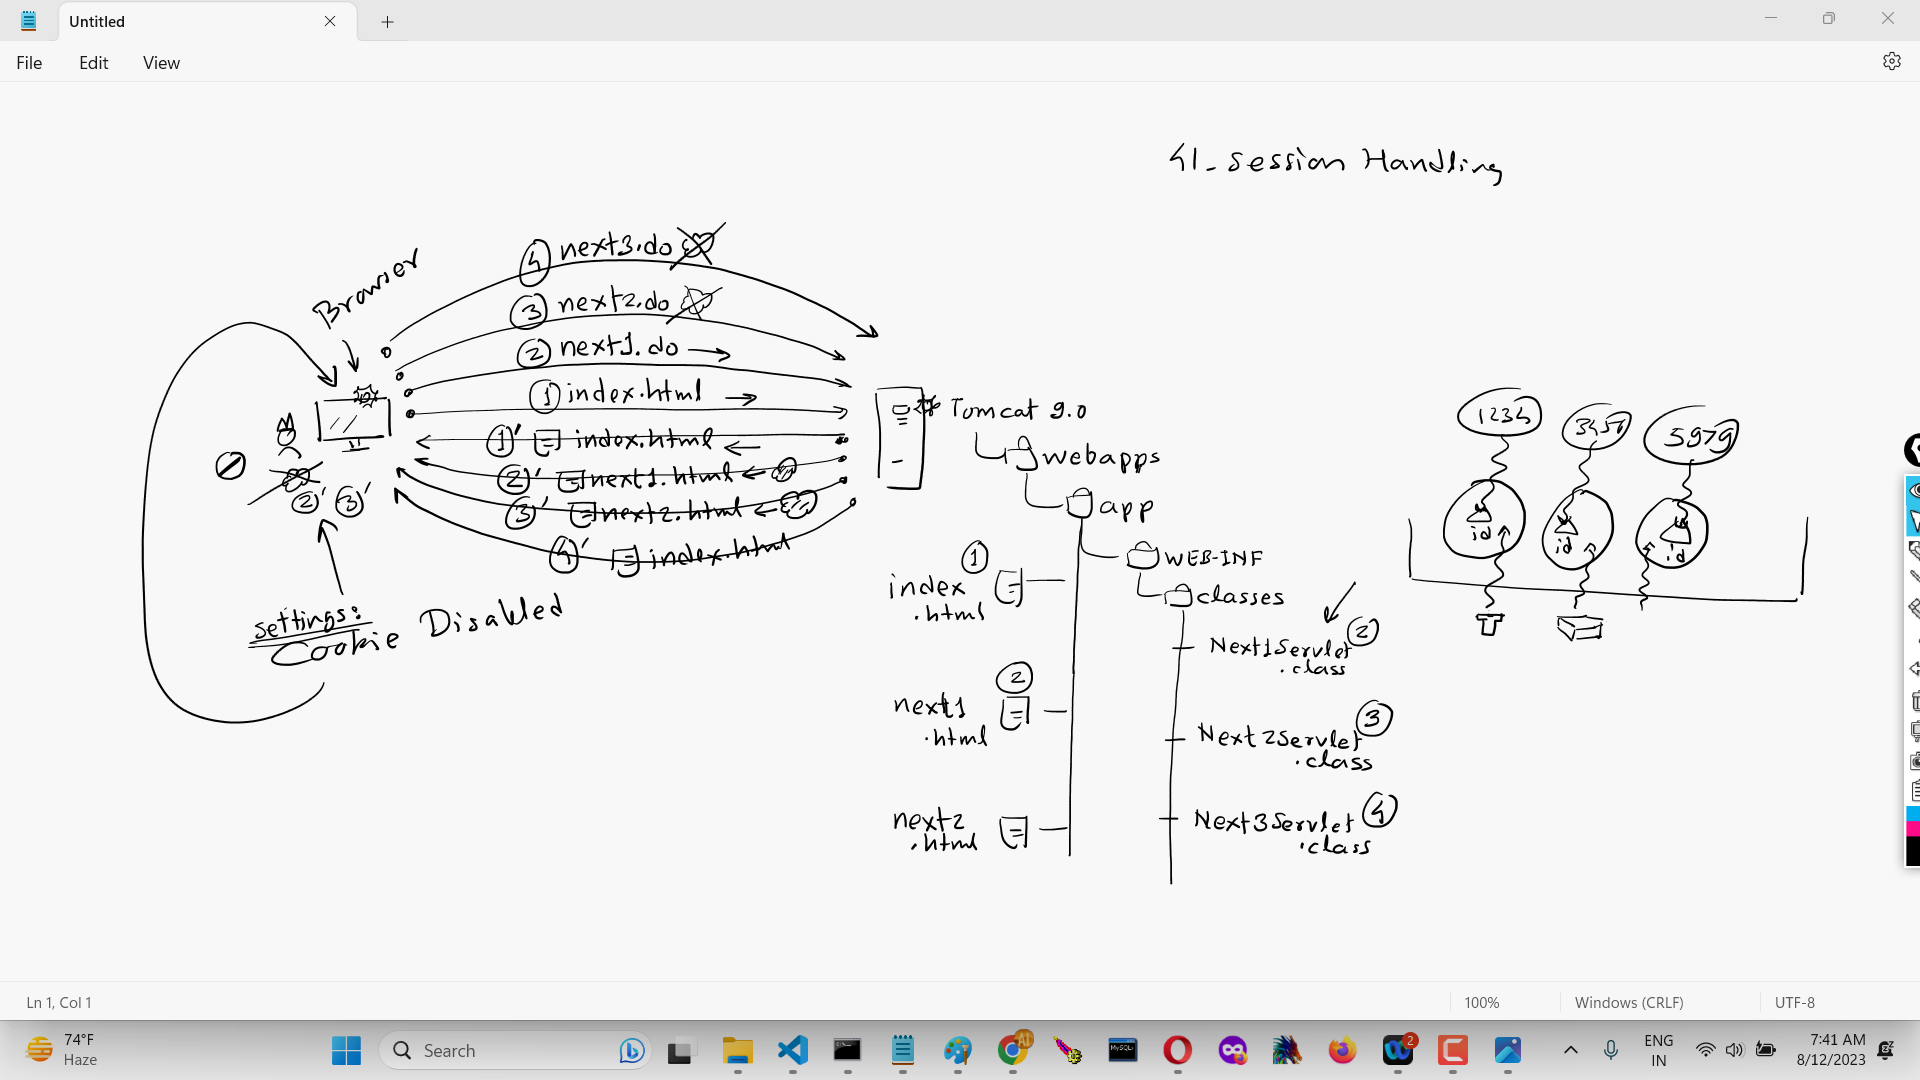 Untitled
File Edit View
41-Session Handling
Browser
4 next3.do
3 next2.do
2 next1.do
1 index.html
1' index.html
2' next1.html
3' next2.html
4' index.html
2' 3'
settings:
Cookie Disabled
Tomcat 9.0
webapps
app
WEB-INF
classes
1
index
.html
2
next1
.html
next2
.html
Next1Servlet 2
.class
Next2Servlet 3
.class
Next3Servlet 4
.class
1234
5979
id id id
Ln 1, Col 1 100% Windows (CRLF) UTF-8
74°F
Haze
Search
MySQL
2
ENG
IN
7:41 AM
8/12/2023